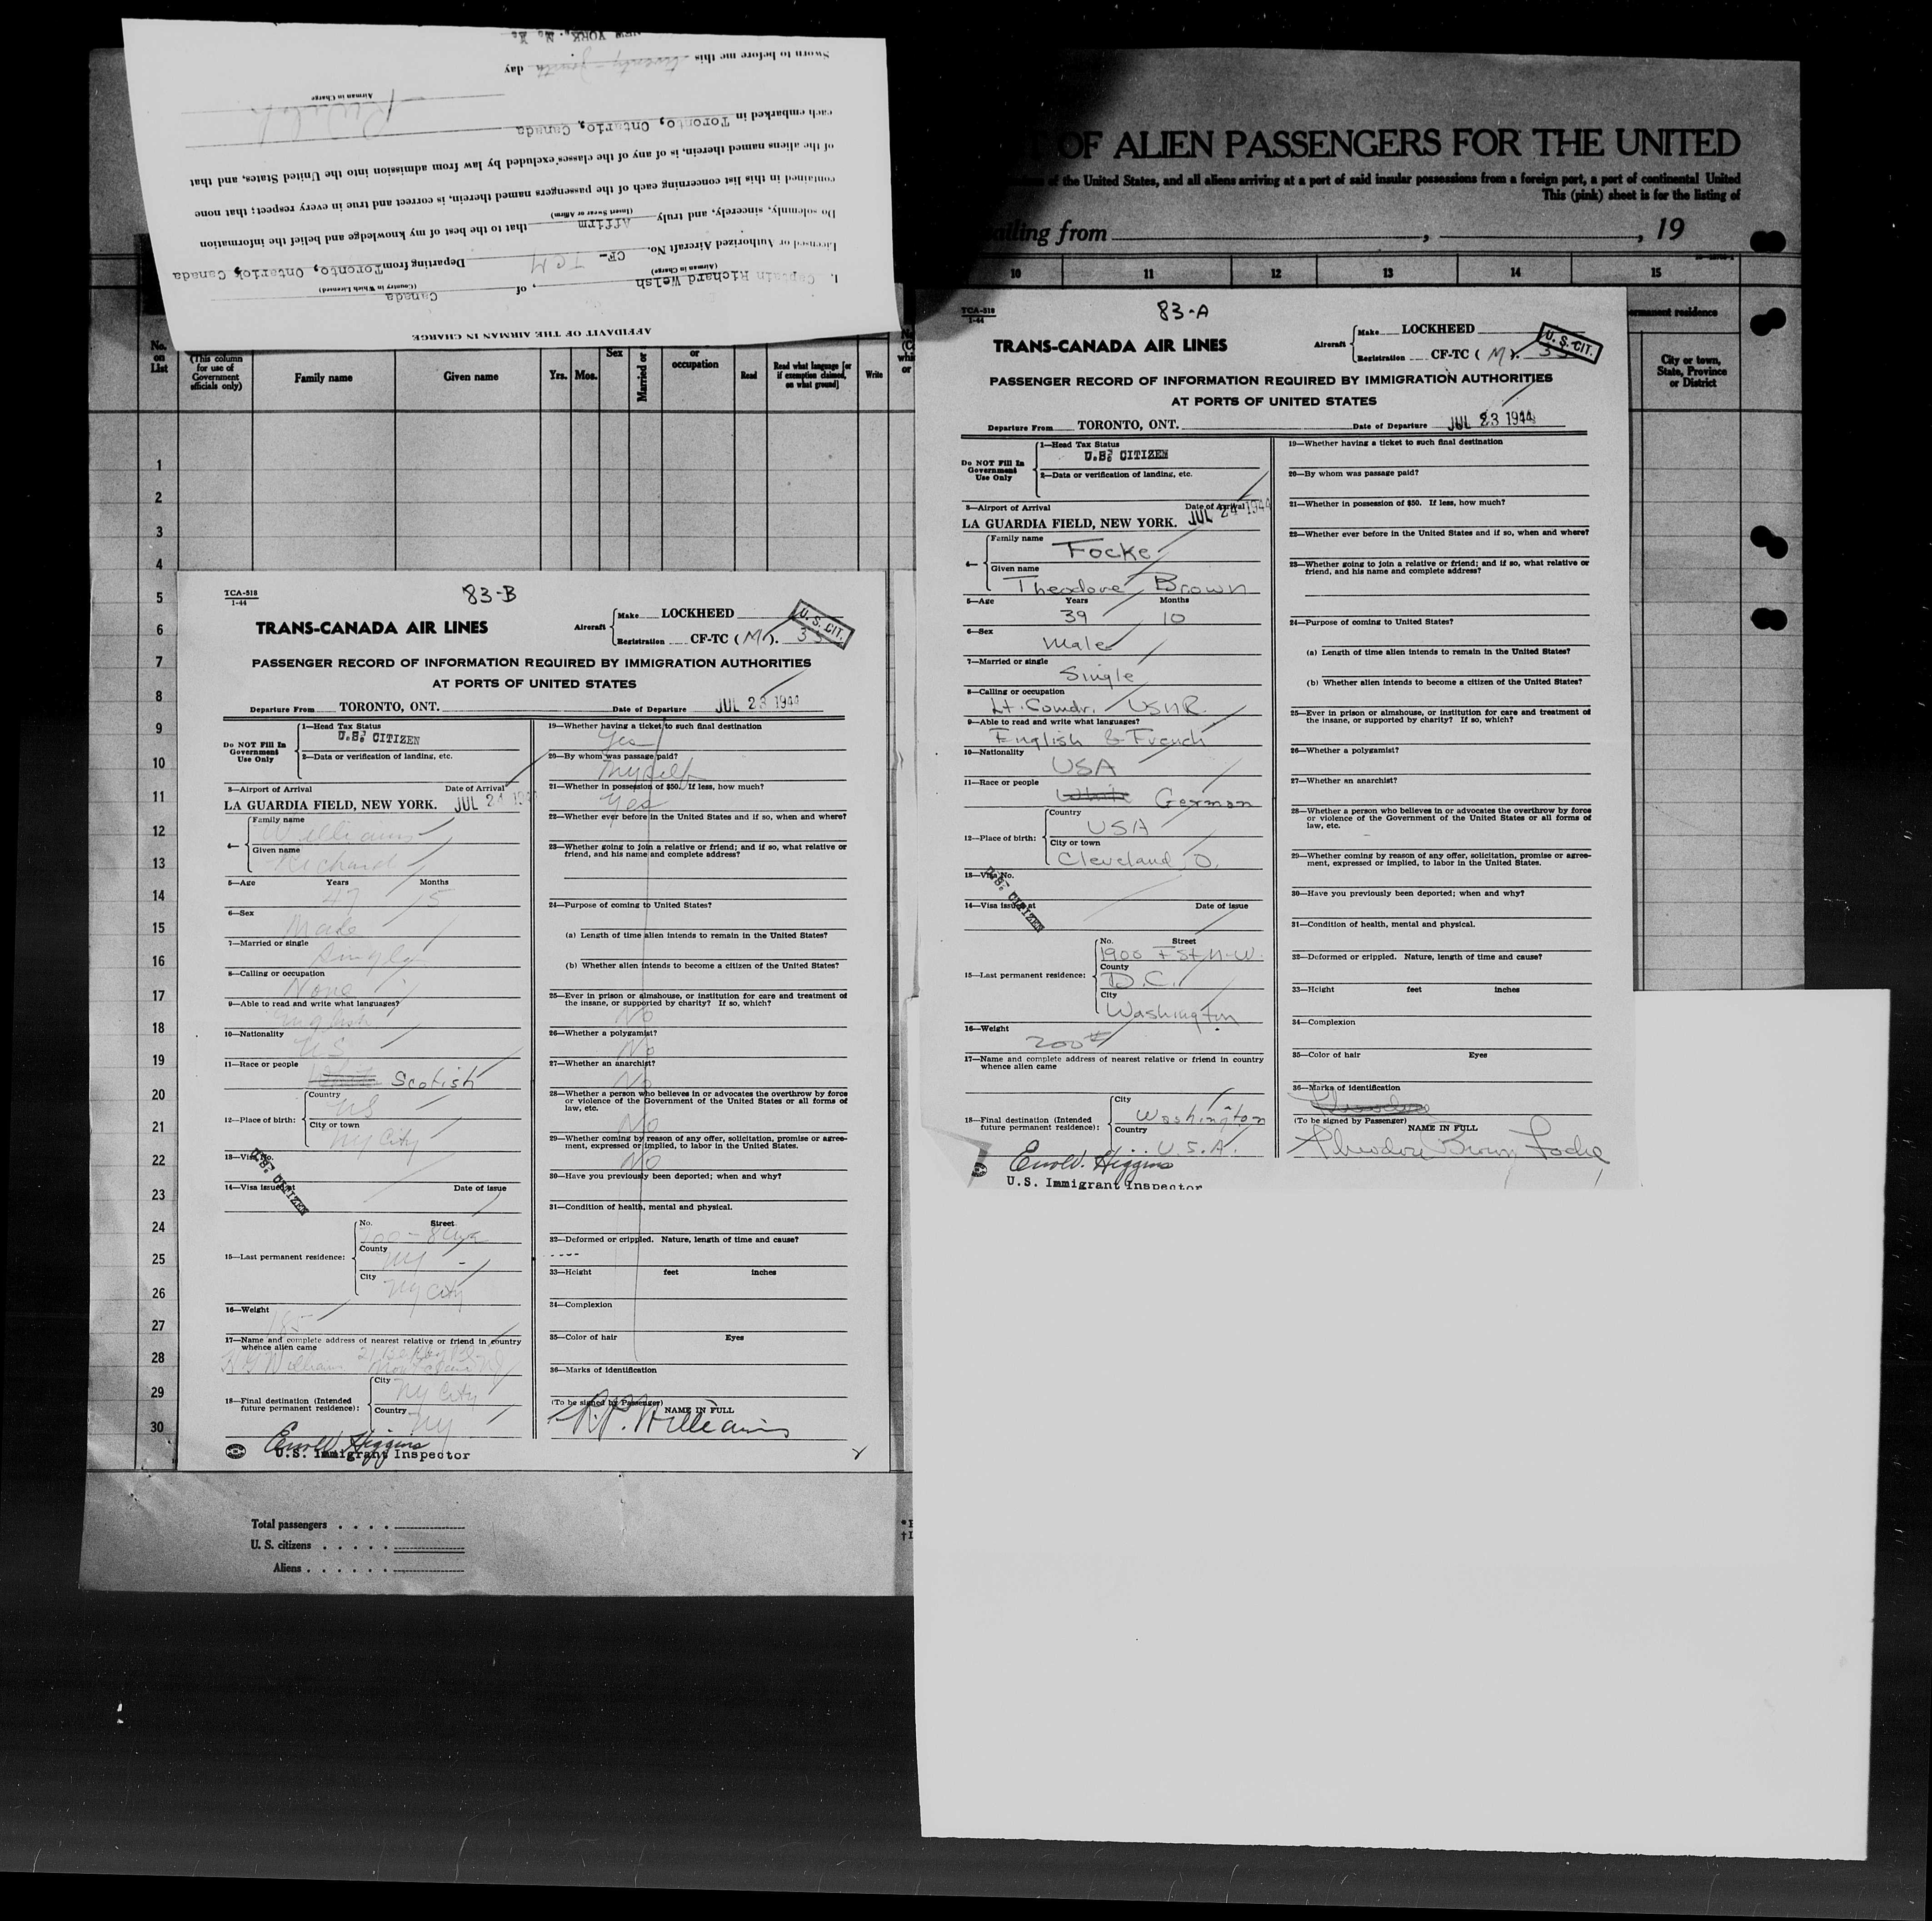 AFFIDAVIT OF THE AIRMAN IN CHARGE
I, Captain Richard Welsh, of Canada
(Airman in Charge) (Country in Which Licensed)
Licensed or Authorized Aircraft No. CF- TCM Departing from Toronto, Ontario, Canada
Do solemnly, sincerely, and truly Affirm that to the best of my knowledge and belief the information
(Insert Swear or Affirm)
contained in this list concerning each of the passengers named therein, is correct and true in every respect; that none
of the aliens named therein, is of any of the classes excluded by law from admission into the United States, and that
each embarked in Toronto, Ontario, Canada
R Welsh
Airman in Charge
Sworn to before me this twenty-fourth day
NEW YORK, N. Y.
OF ALIEN PASSENGERS FOR THE UNITED
of the United States, and all aliens arriving at a port of said insular possessions from a foreign port, a port of continental United
This (pink) sheet is for the listing of
ailing from , , 19
10 11 12 13 14 15
permanent residence
City or town, State, Province or District
No. on List
(This column for use of Government officials only)
Family name
Given name
Yrs. Mos.
Sex
Married or
or occupation
Read
Read what language [or if exemption claimed, on what ground]
Write
1
2
3
4
5
6
7
8
9
10
11
12
13
14
15
16
17
18
19
20
21
22
23
24
25
26
27
28
29
30
Total passengers . . . .
U. S. citizens . . . . .
Aliens . . . . . .
TCA-518
1-44
83-B
TRANS-CANADA AIR LINES
Aircraft
Make LOCKHEED
Registration CF-TC ( M ).
U. S. CIT.
PASSENGER RECORD OF INFORMATION REQUIRED BY IMMIGRATION AUTHORITIES
AT PORTS OF UNITED STATES
Departure From TORONTO, ONT. Date of Departure JUL 23 1944
Do NOT Fill In Government Use Only
1—Head Tax Status
U.S. CITIZEN
2—Data or verification of landing, etc.
3—Airport of Arrival Date of Arrival
LA GUARDIA FIELD, NEW YORK. JUL 24 194
4—
Family name
Williams
Given name
Richard
5—Age Years Months
47 5
6—Sex
Male
7—Married or single
Single
8—Calling or occupation
None
9—Able to read and write what languages?
English
10—Nationality
US
11—Race or people
White Scotish
12—Place of birth:
Country
US
City or town
NY City
13—Visa No.
U.S. CITIZEN
14—Visa issued at Date of issue
15—Last permanent residence:
No. Street
700 - 8 Ave
County
NY
City
NY City
16—Weight
185
17—Name and complete address of nearest relative or friend in country
whence alien came
Williams
18—Final destination (Intended
future permanent residence):
City
NY City
Country
NY
Errol W. Higgins
U.S. Immigrant Inspector
19—Whether having a ticket to such final destination
Yes
20—By whom was passage paid?
Myself
21—Whether in possession of $50. If less, how much?
Yes
22—Whether ever before in the United States and if so, when and where?
23—Whether going to join a relative or friend; and if so, what relative or
friend, and his name and complete address?
24—Purpose of coming to United States?
(a) Length of time alien intends to remain in the United States?
(b) Whether alien intends to become a citizen of the United States?
25—Ever in prison or almshouse, or institution for care and treatment of
the insane, or supported by charity? If so, which?
No
26—Whether a polygamist?
No
27—Whether an anarchist?
No
28—Whether a person who believes in or advocates the overthrow by force
or violence of the Government of the United States or all forms of
law, etc.
No
29—Whether coming by reason of any offer, solicitation, promise or agree-
ment, expressed or implied, to labor in the United States.
No
30—Have you previously been deported; when and why?
31—Condition of health, mental and physical.
32—Deformed or crippled. Nature, length of time and cause?
----
33—Height feet inches
34—Complexion
35—Color of hair Eyes
36—Marks of identification
(To be signed by Passenger) NAME IN FULL
R.P. Williams
TCA-518
1-44
83-A
TRANS-CANADA AIR LINES
Aircraft
Make LOCKHEED
Registration CF-TC ( M ).
U. S. CIT.
PASSENGER RECORD OF INFORMATION REQUIRED BY IMMIGRATION AUTHORITIES
AT PORTS OF UNITED STATES
Departure From TORONTO, ONT. Date of Departure JUL 23 1944
Do NOT Fill In Government Use Only
1—Head Tax Status
U.S. CITIZEN
2—Data or verification of landing, etc.
3—Airport of Arrival Date of Arrival
LA GUARDIA FIELD, NEW YORK. JUL 24 1944
4—
Family name
Focke
Given name
Theodore Brown
5—Age Years Months
39 10
6—Sex
Male
7—Married or single
Single
8—Calling or occupation
Lt. Comdr. USNR
9—Able to read and write what languages?
English & French
10—Nationality
USA
11—Race or people
White German
12—Place of birth:
Country
USA
City or town
Cleveland, O.
13—Visa No.
U.S. CITIZEN
14—Visa issued at Date of issue
15—Last permanent residence:
No. Street
1900 F St N.W.
County
D.C.
City
Washington
16—Weight
200#
17—Name and complete address of nearest relative or friend in country
whence alien came
18—Final destination (Intended
future permanent residence):
City
Washington
Country
U.S.A.
Errol W. Higgins
U.S. Immigrant Inspector
19—Whether having a ticket to such final destination
20—By whom was passage paid?
21—Whether in possession of $50. If less, how much?
22—Whether ever before in the United States and if so, when and where?
23—Whether going to join a relative or friend; and if so, what relative or
friend, and his name and complete address?
24—Purpose of coming to United States?
(a) Length of time alien intends to remain in the United States?
(b) Whether alien intends to become a citizen of the United States?
25—Ever in prison or almshouse, or institution for care and treatment of
the insane, or supported by charity? If so, which?
26—Whether a polygamist?
27—Whether an anarchist?
28—Whether a person who believes in or advocates the overthrow by force
or violence of the Government of the United States or all forms of
law, etc.
29—Whether coming by reason of any offer, solicitation, promise or agree-
ment, expressed or implied, to labor in the United States.
30—Have you previously been deported; when and why?
31—Condition of health, mental and physical.
32—Deformed or crippled. Nature, length of time and cause?
33—Height feet inches
34—Complexion
35—Color of hair Eyes
36—Marks of identification
(To be signed by Passenger) NAME IN FULL
Theodore Brown Focke